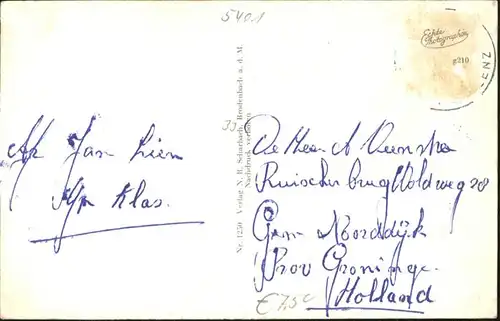 5401
Echte
Photographie
g210
ENZ
Af Jan Lien
Afz Klas.
Nr. 1250 Verlag N. B. Scharlach, Brodenbach a. d. M.
Nachdruck verboten
33
De Heer A Veenstra
Ruischerbrug Woldweg 28
Gem Noorddijk
Prov Groninge.
Holland
€ 7,50